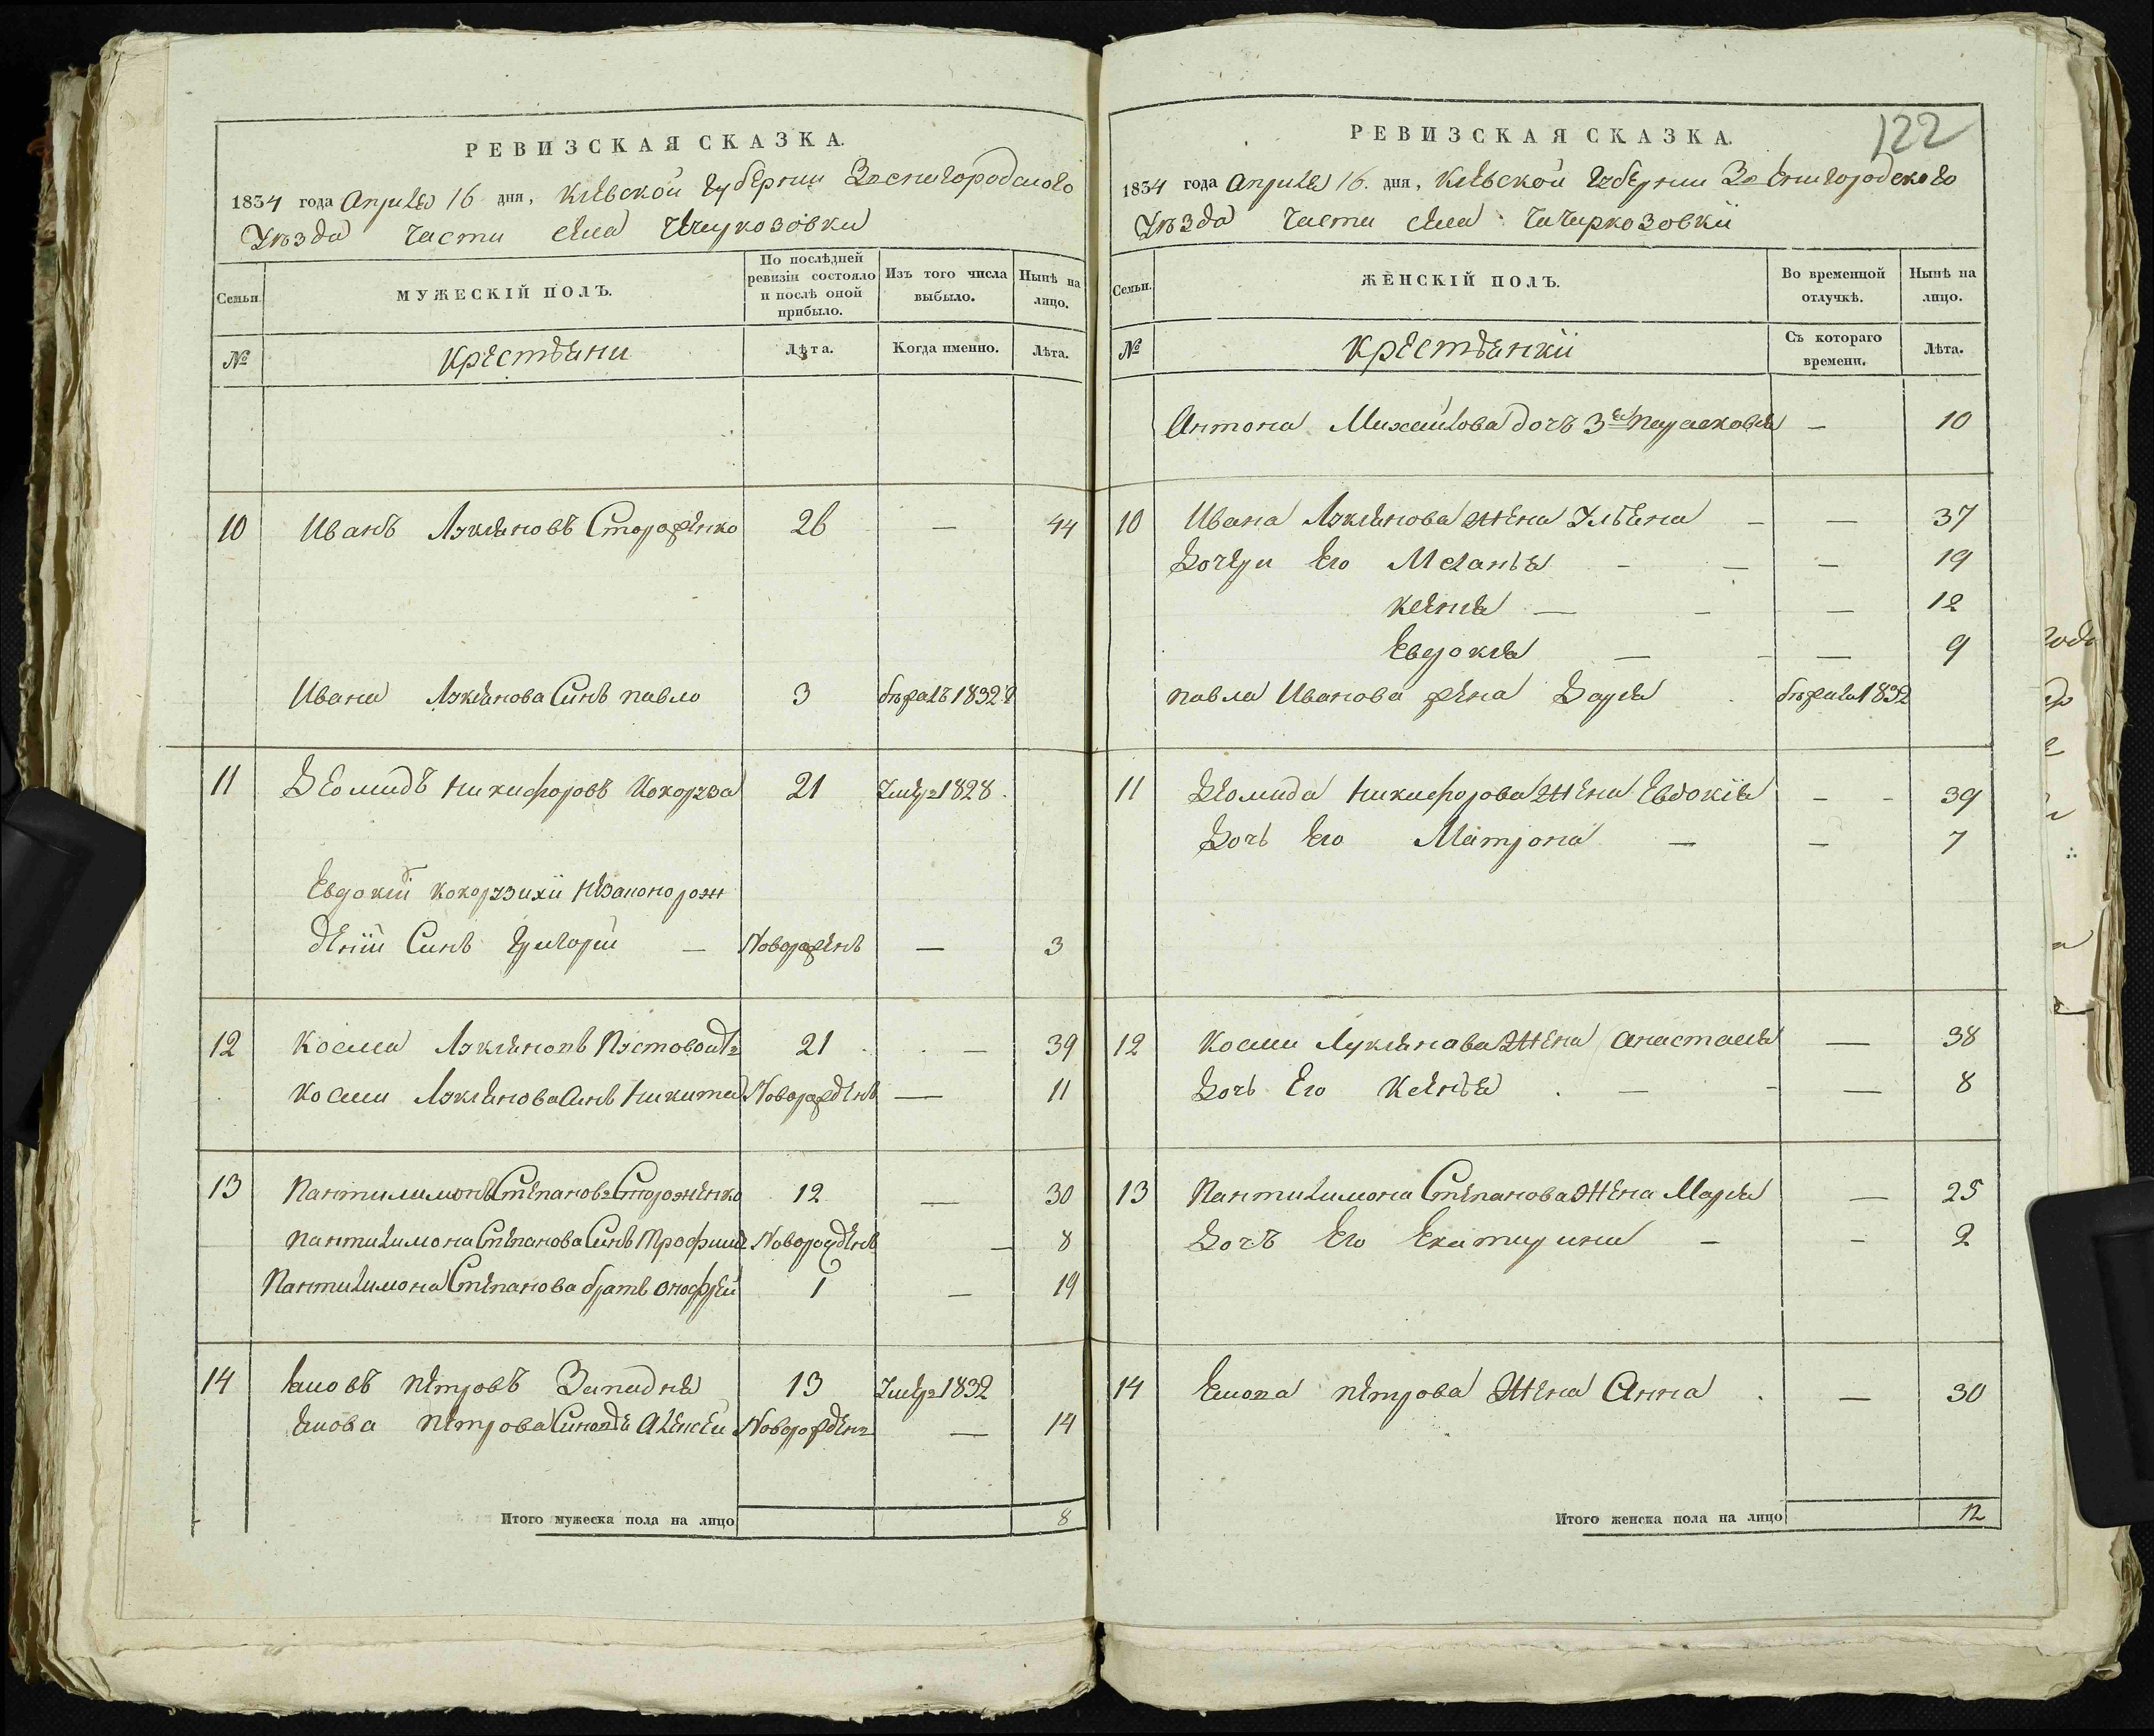 РЕВИЗСКАЯ СКАЗКА.
1834 года Априля 16 дня, Кіевской Губернии Звенигородского
Уезда части села Чичиркозовки
Семьи.
МУЖЕСКІЙ ПОЛЪ.
По послѣдней ревизіи состояло и послѣ оной прибыло.
Изъ того числа выбыло.
Нынѣ на лицо.
№
Крестьяни
Лѣта.
Когда именно.
Лѣта.
10 Иванъ Лукяновъ Стороженко 26 — 44
Ивана Лукянова Синъ павло 3 бѣжалъ 1832
11 Деомидъ Никифоровъ Кокоруза 21 Умеръ 1828
Евдокіи Кокорузихи Незаконорож
деній Синъ Григорій — Новорожденъ — 3
12 Косма Лукяновъ Пустовоитъ 21 — 39
Косми Лукянова Синъ Никита Новорожденъ — 11
13 Пантилимонъ Степановъ Стороженко 12 — 30
Пантилимона Степанова Синъ Трофимъ Новорожденъ — 8
Пантилимона Степанова братъ Онофрей 1 — 19
14 Яковъ Петровъ 13 Умеръ 1832
Якова Петрова Синъ Алексей Новорожденъ — 14
Итого мужеска пола на лицо 8
122
РЕВИЗСКАЯ СКАЗКА.
1834 года Априля 16. дня, Кіевской Губернии Звенигородского
Уезда части села Чичиркозовки
Семьи.
ЖЕНСКІЙ ПОЛЪ.
Во временной отлучкѣ.
Нынѣ на лицо.
№
Крестьянки
Съ котораго времени.
Лѣта.
Антона Михайлова дочъ 3я Парасковія — 10
10 Ивана Лукянова Жена Ульяна — — 37
Дочери Его Меланья — — — 19
Ксеня — — — 12
Евдокія — — — 9
павла Иванова жена Дарія бѣжала 1832
11 Деомида Никифорова Жена Евдокія — — 39
Дочь Его Матрона — — 7
12 Косми Лукянова Жена Анастасія — 38
Дочь Его Ксенья — — — 8
13 Пантилимона Степанова Жена Марія — 25
Дочъ Его Екатирина — — 2
14 Якова Петрова Жена Анна — 30
Итого женска пола на лицо 12